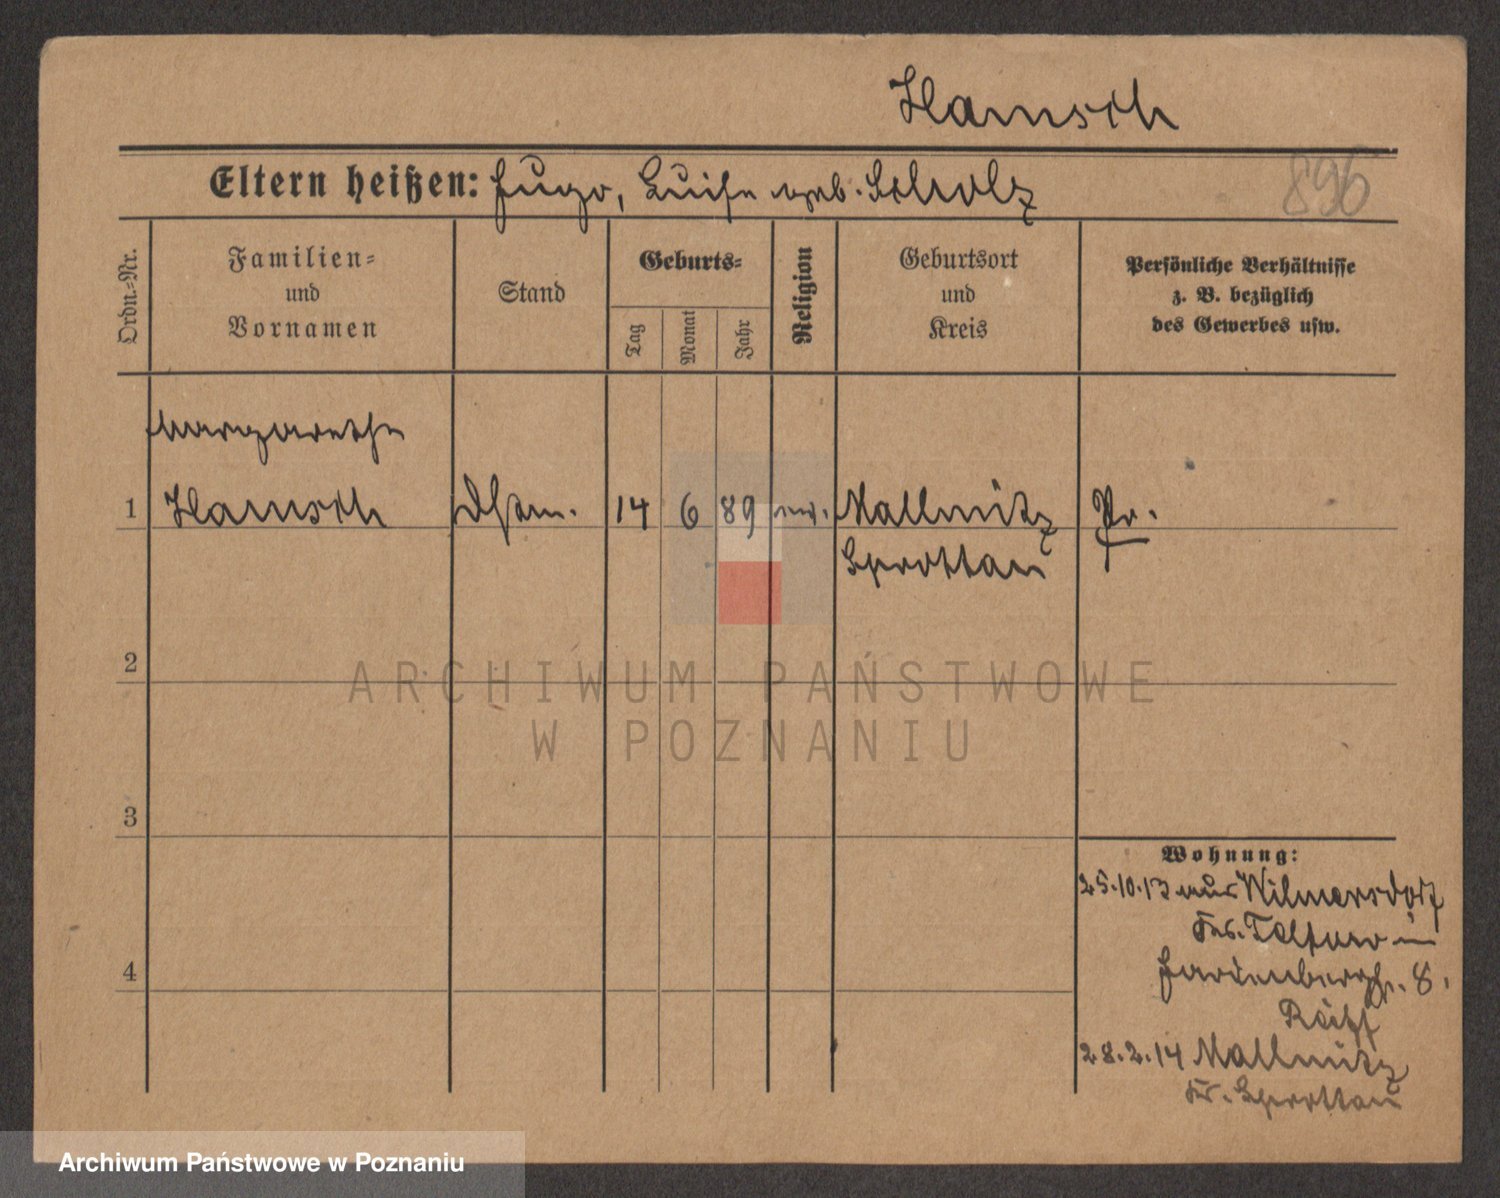 Hamsch
Eltern heißen: Hugo, Luise geb. Scholz
896
Ordn.-Nr.
Familien-
und
Vornamen
Stand
Geburts-
Tag
Monat
Jahr
Religion
Geburtsort
und
Kreis
Persönliche Verhältnisse
z. B. bezüglich
des Gewerbes usw.
Margarethe
1 Hamsch 14 6 89 ev. Mallmitz Pr.
Sprottau
2
3
4
Wohnung:
25.10.13 aus Wilmersdorf
Krs. Teltow in
28.2.14 Mallmitz
Kr. Sprottau
ARCHIWUM PAŃSTWOWE
W POZNANIU
Archiwum Państwowe w Poznaniu